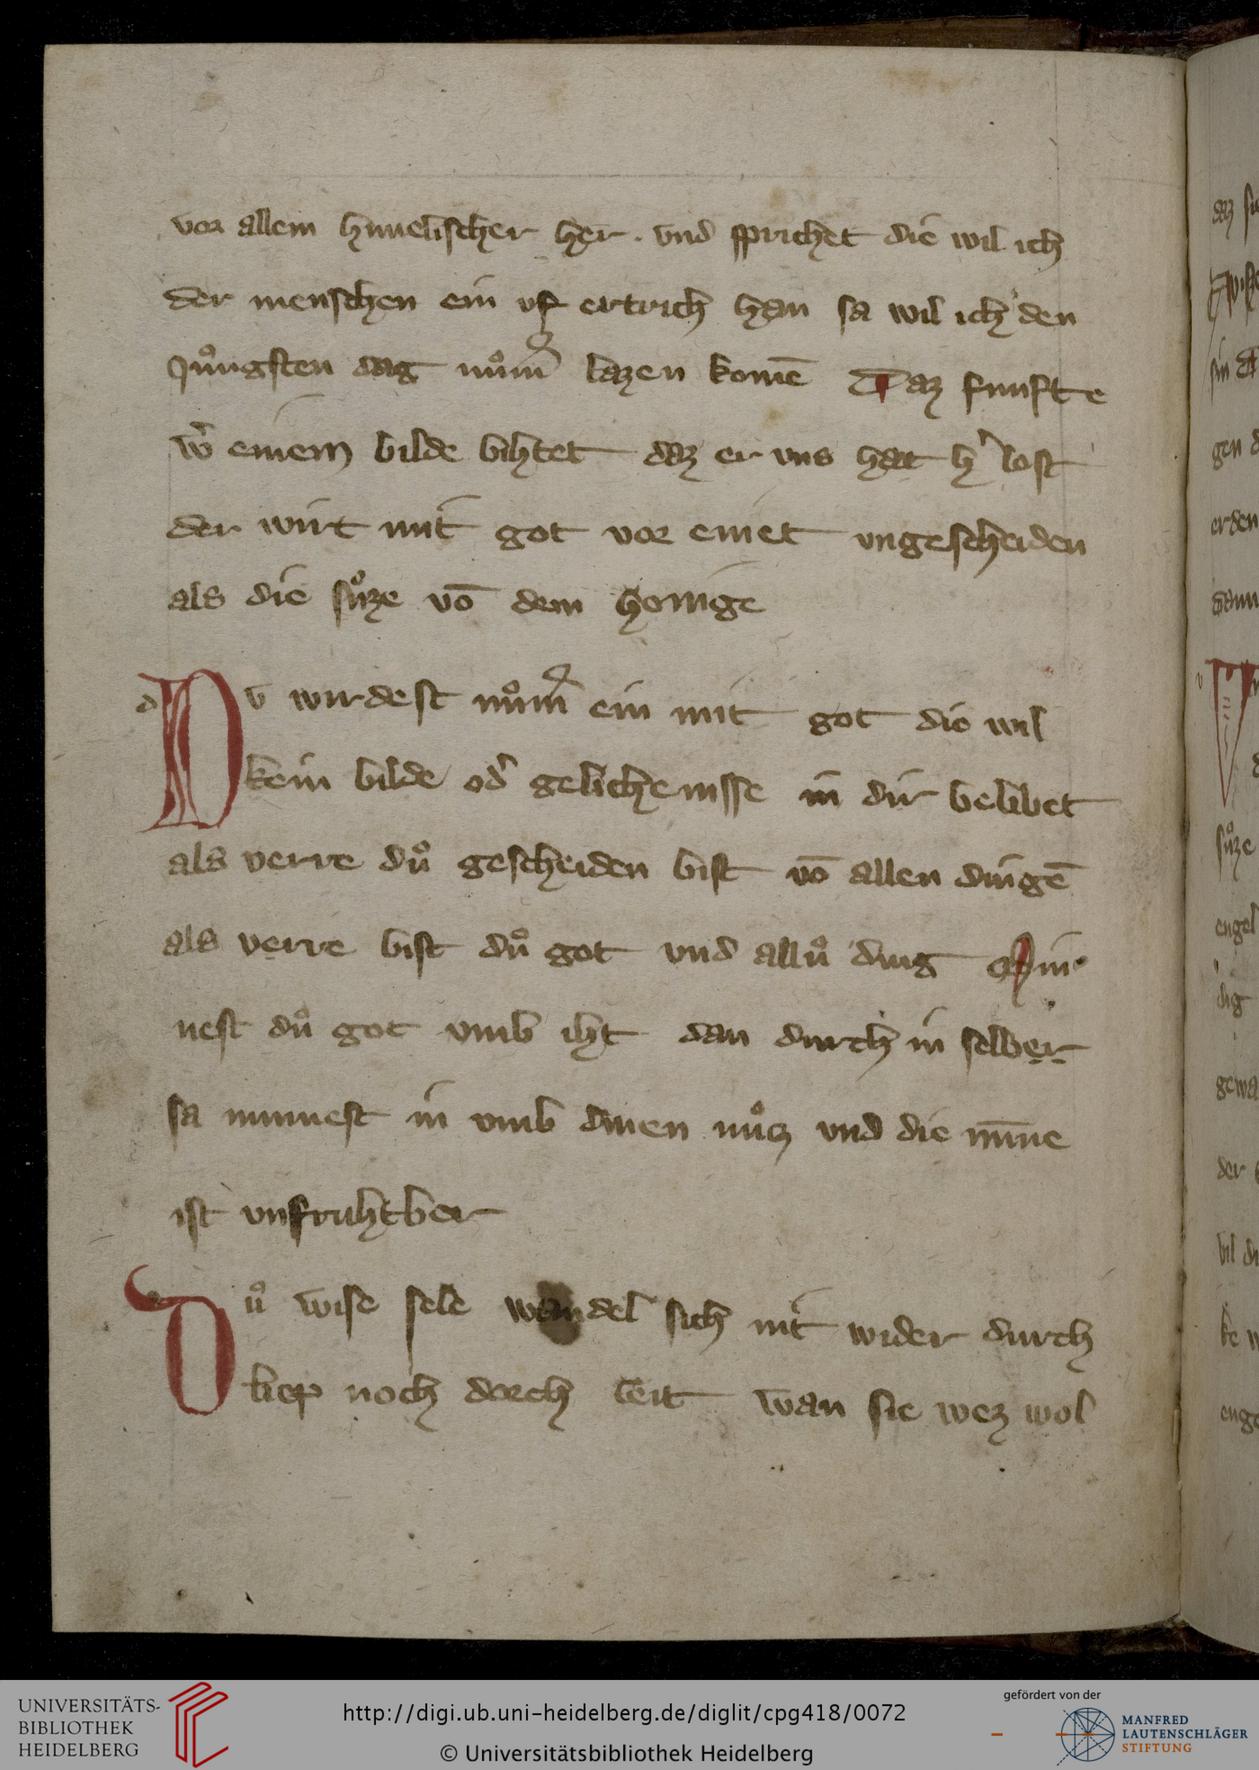 vor allem himelischer her. vnd sprichet die wil ich
der menschen ein vf ertrich han sa wil ich den
Jungsten dag nům̄ lazen komē Daz funfte
w̾ einem bilde bihtet daz er vns hat h̾lost
der wirt mit got vor einet vngescheiden
als die sůze vō dem honige
DV wirdest nům̄ ein mit got die wil
kein bilde od̾ gelichenisse in dir belibet
als verre dů gescheiden bist vō allen dingē
als verre bist dů got vnd allů ding Min
nest dů got vmb iht dan durch in selber
sa minnest in vmb dinen nůcz vnd die mīne
ist vnfruhtber
Dů wise sele wandel sich nit wider durch
liep noch dorch leit wan sie wez wol
daz
sin
gen
erden
sůze
engel
dig
gewa
der
vil
ke
enge
UNIVERSITÄTS-
BIBLIOTHEK
HEIDELBERG
http://digi.ub.uni-heidelberg.de/diglit/cpg418/0072
© Universitätsbibliothek Heidelberg
gefördert von der
MANFRED
LAUTENSCHLÄGER
STIFTUNG